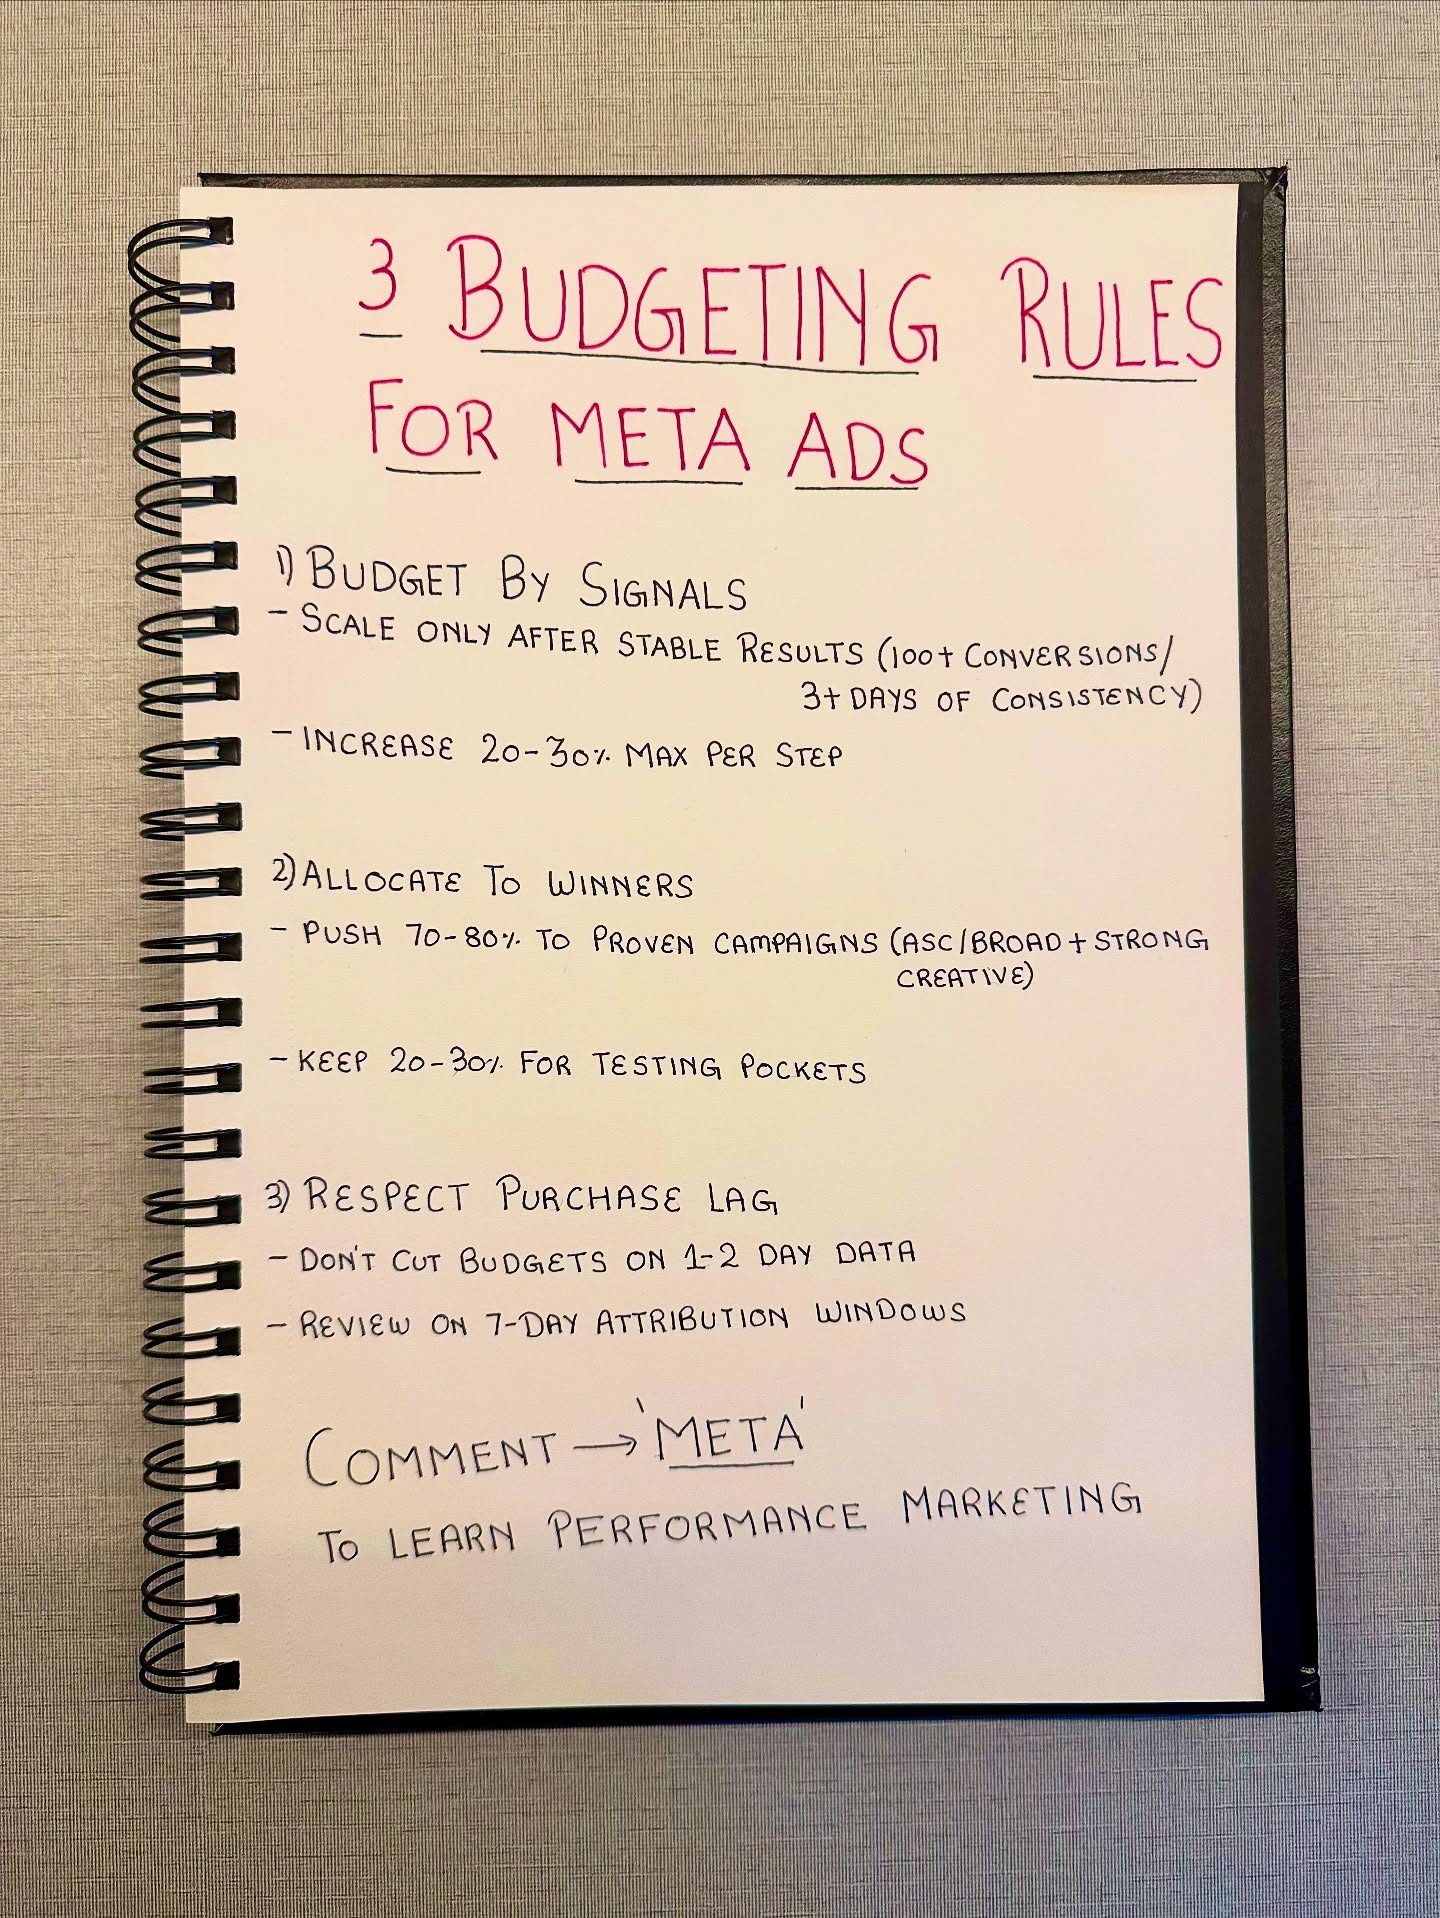 3 BUDGETING RULES
FOR META ADS
1) BUDGET BY SIGNALS
- SCALE ONLY AFTER STABLE RESULTS (100+ CONVERSIONS/
3+ DAYS OF CONSISTENCY)
- INCREASE 20-30% MAX PER STEP
2) ALLOCATE TO WINNERS
- PUSH 70-80% TO PROVEN CAMPAIGNS (ASC/BROAD + STRONG
CREATIVE)
- KEEP 20-30% FOR TESTING POCKETS
3) RESPECT PURCHASE LAG
- DON'T CUT BUDGETS ON 1-2 DAY DATA
- REVIEW ON 7-DAY ATTRIBUTION WINDOWS
COMMENT → 'META'
TO LEARN PERFORMANCE MARKETING